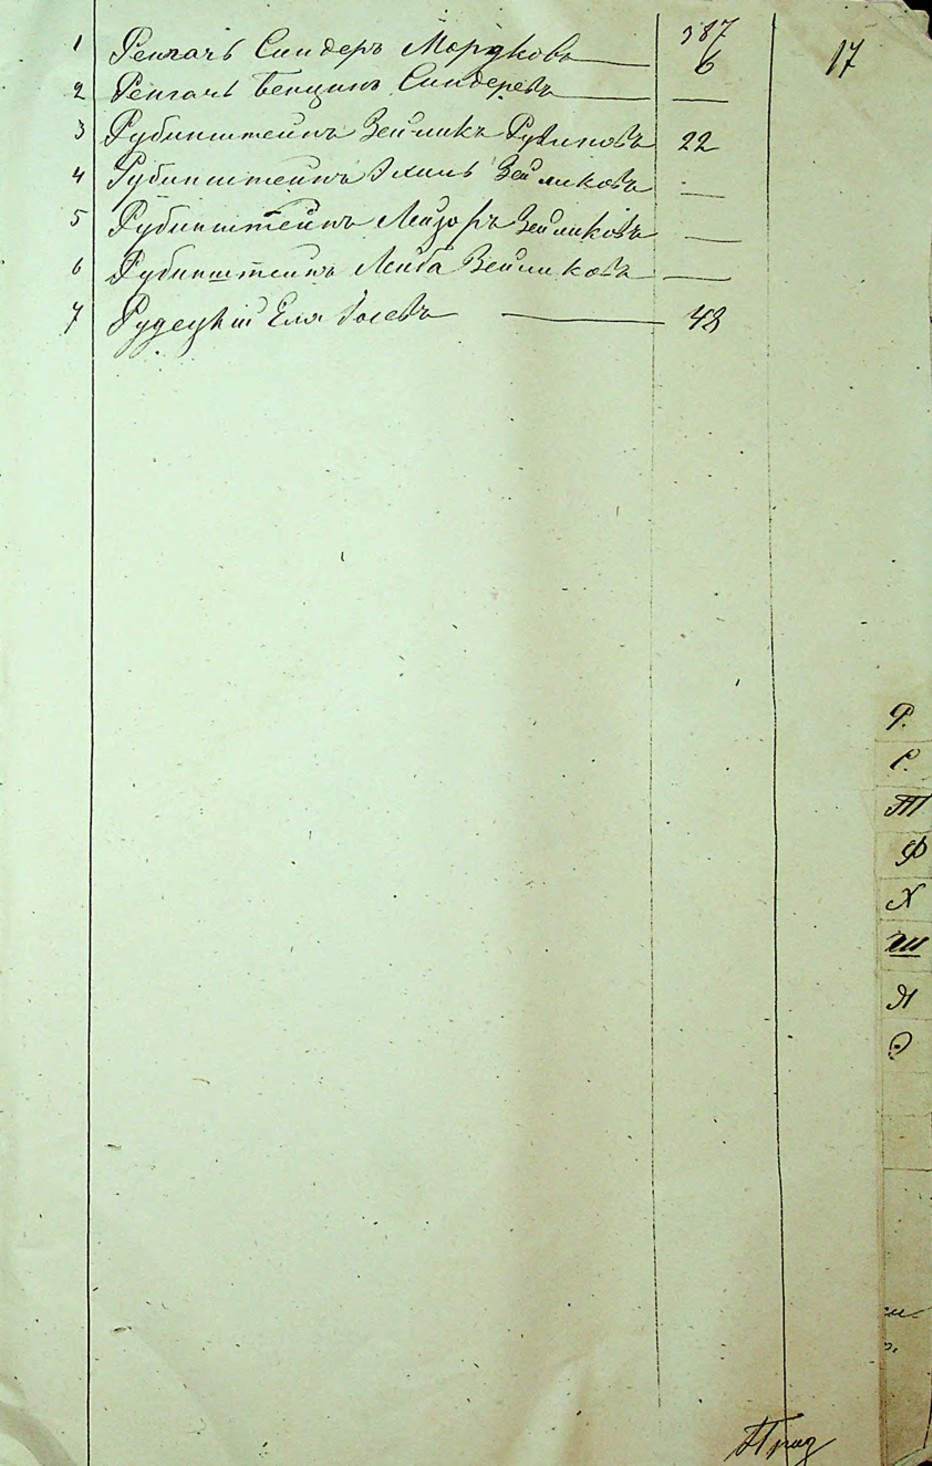 387
17
1 Ренгачъ Сендеръ Мордковъ 6
2 Ренгачъ Бенціинъ Сендеревъ —
3 Рубинштейнъ Зейликъ Рувиновъ 22
4 Рубинштейнъ Эхиль Зейликовъ —
5 Рубинштейнъ Лейзоръ Зейликовъ —
6 Рубинштейнъ Лейба Зейликовъ —
7 Рудецкій Еля 48
Р.
С.
Т
Ф
Х
Ш
Я
Э